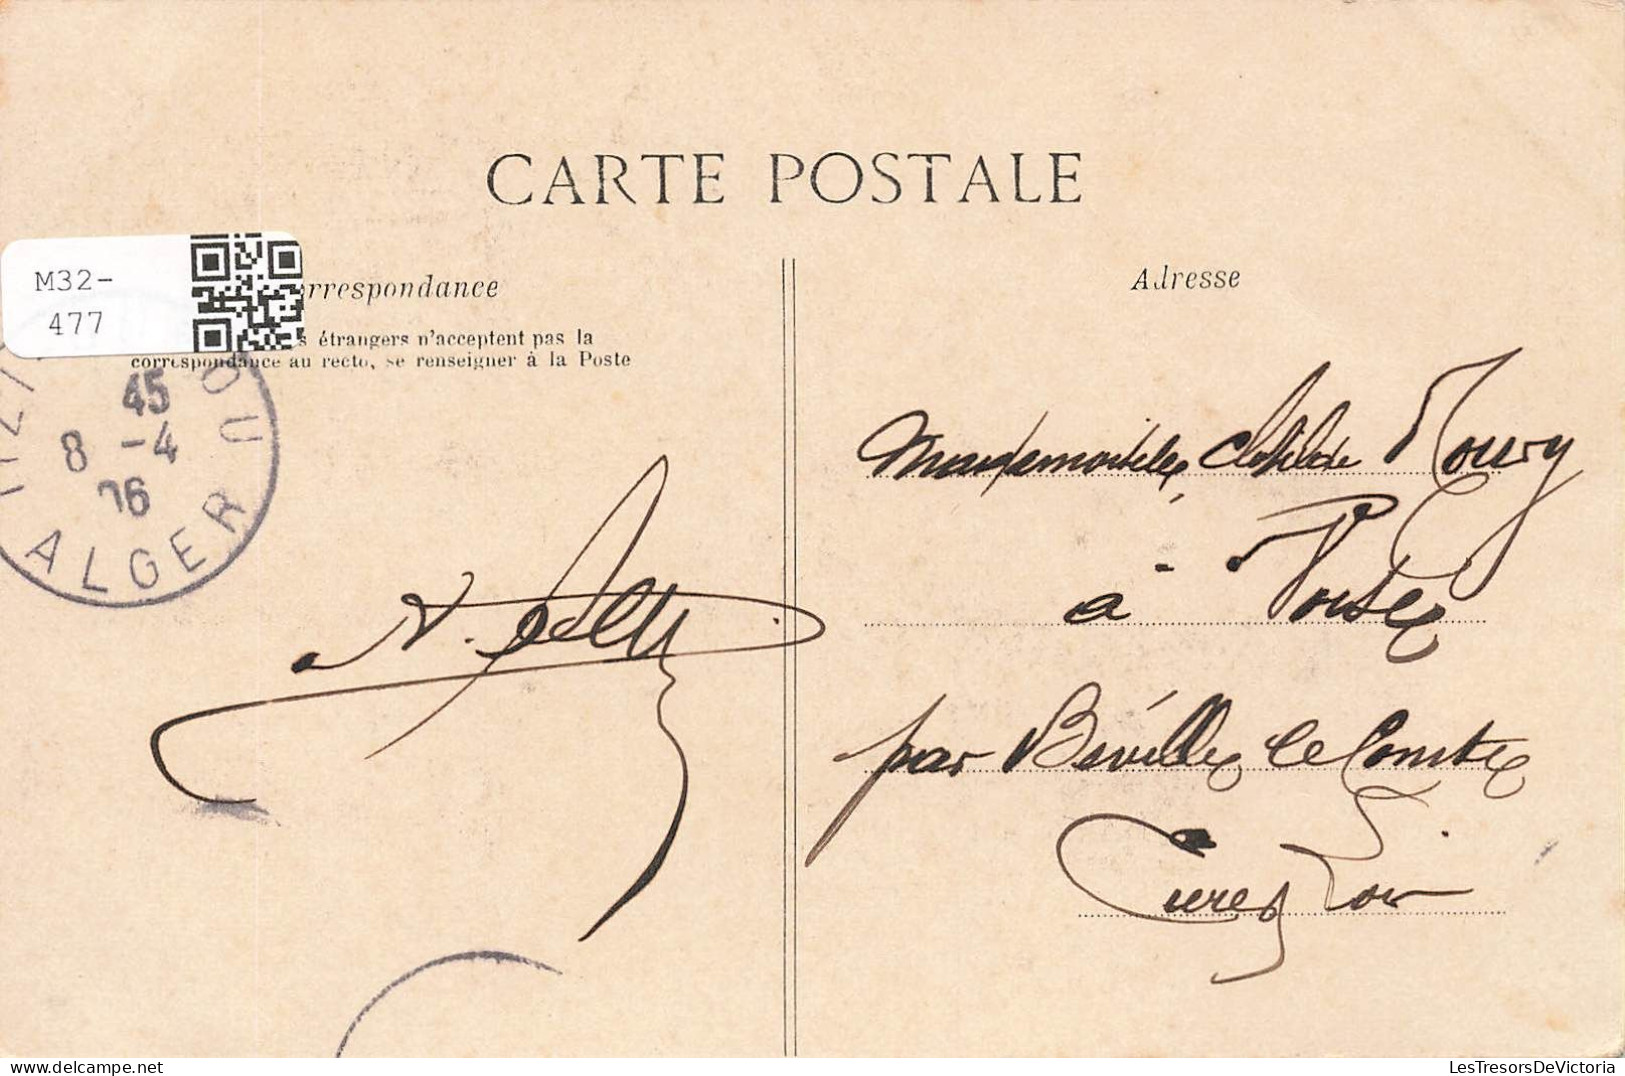 CARTE POSTALE
M32-
477
orrespondance
Adresse
s étrangers n'acceptent pas la
correspondance au recto, se renseigner à la Poste
TIZI
OU
45
8 -4
06
ALGER
Mademoiselle Clotilde Moury
à
par Béville le Comte
Eure & Loir
LesTresorsDeVictoria